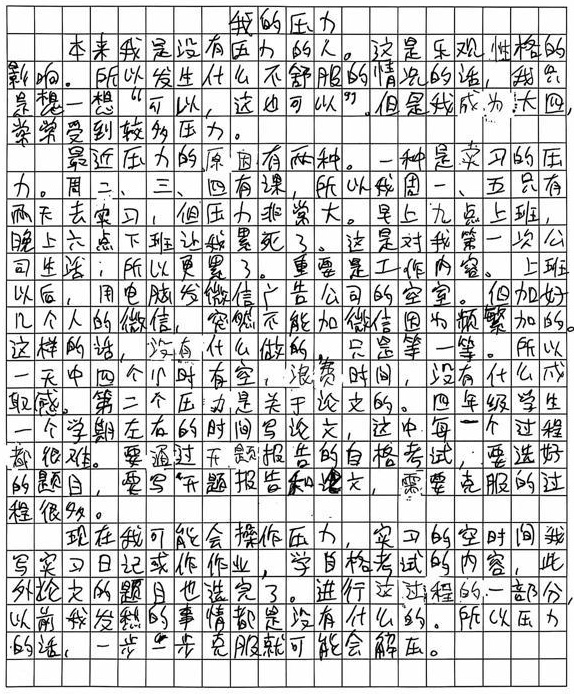 我的压力
本来我是没有压力的人。这是乐观性格的
影响。所以发生什么不舒服的情况的话，我只
是想一想“可以，这也可以”。但是我成为大四，
常常受到较多压力。
最近压力的原因有两种。一种是实习的压
力。周二、三、四有课，所以我周一、五只有
两天去实习，但压力非常大。早上九点上班，
晚上六点下班让我累死了。这是对我第一次公
司生活；所以更累了。重要是工作内容。上班
以后，用电脑发微信广告公司的空室。但加好
几个人的微信，突然不能加微信因为频繁加的。
这样的话，没有什么做的，只是等一等。所以
一天中四个小时有空，浪费时间，没有什么成
就感。第二个压力是关于论文的。四年级学生
一个学期左右的时间写论文，这中每一个过程
都很难。要通过开题报告的自格考试，要选好
的题目，要写开题报告和论文，需要克服的过
程很多。
现在我可能会操作压力，实习的空时间我
写实习日记或作作业，学自格考试的内容，此
外论文的题目也选完了。进行这过程的一部分，
以前我发愁的事情都是没有什么的。所以压力
的话，一步一步克服就可能会解压。